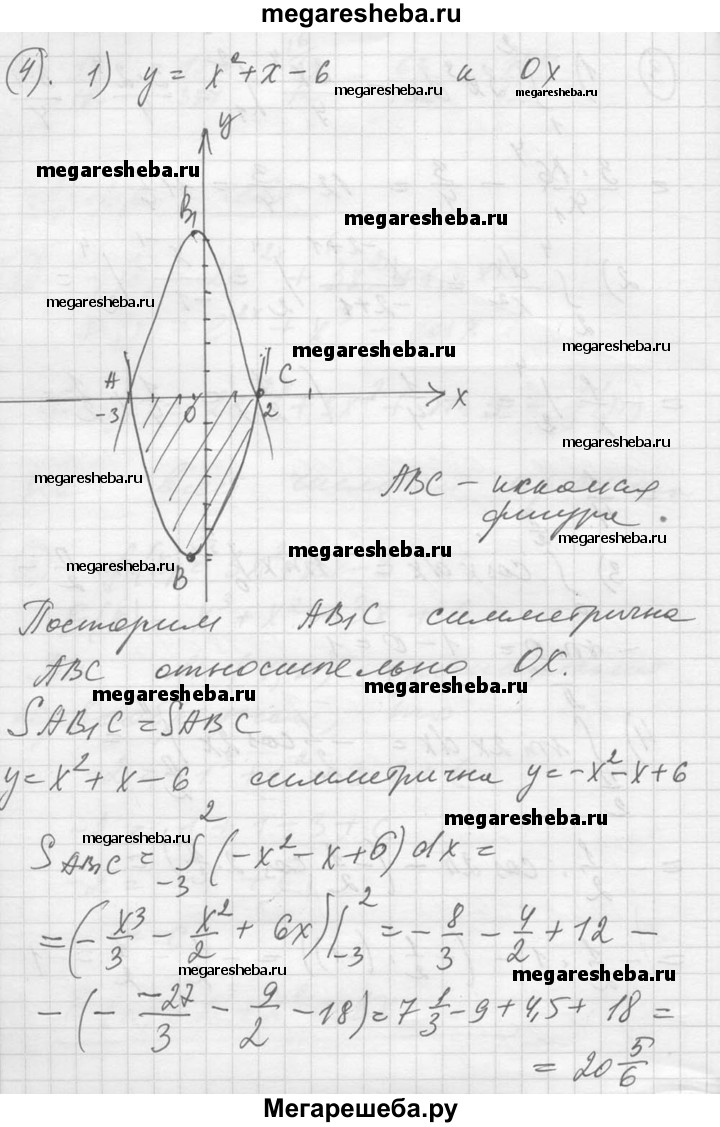 megaresheba.ru
(4). 1) y = x² + x − 6 и OX
megaresheba.ru megaresheba.ru
y
megaresheba.ru
B₁
megaresheba.ru
megaresheba.ru
megaresheba.ru
megaresheba.ru
A C
-3 0 2 x
megaresheba.ru
megaresheba.ru
ABC – искомая
фигура.
megaresheba.ru
megaresheba.ru
megaresheba.ru
B
Построим AB₁C симметрична
ABC относительно OX.
megaresheba.ru megaresheba.ru
SAB₁C = SABC
y = x² + x − 6 симметрична y = −x² − x + 6
megaresheba.ru
megaresheba.ru
S ABC = ∫₋₃² (−x² − x + 6) dx =
= (− x³/3 − x²/2 + 6x) |₋₃² = − 8/3 − 4/2 + 12 −
megaresheba.ru megaresheba.ru
− (− −27/3 − 9/2 − 18) = 7 1/3 − 9 + 4,5 + 18 =
= 20 5/6
Мегарешеба.ру